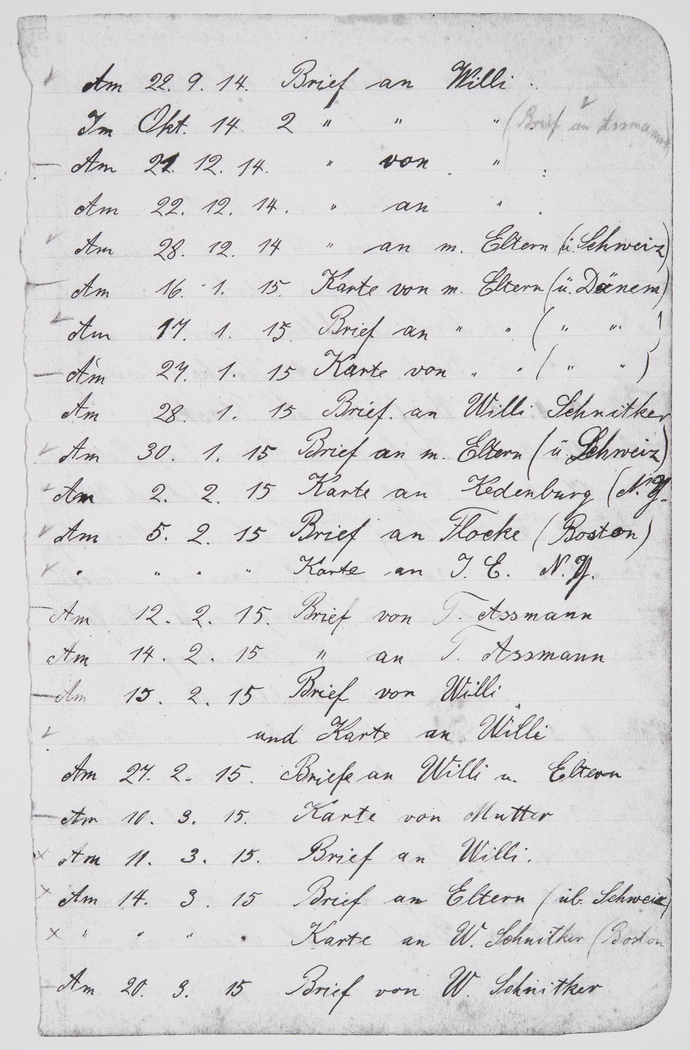 Am 22. 9. 14. Brief an Willi.
Im Okt. 14. 2 " " " (Brief an Assmann
Am 21. 12. 14. " von "
Am 22. 12. 14. " an "
Am 28. 12. 14 " an m. Eltern (ü. Schweiz)
Am 16. 1. 15. Karte von m. Eltern (ü. Dänem)
Am 17. 1. 15. Brief an " " ( " " )
Am 27. 1. 15 Karte von " " ( " " )
Am 28. 1. 15 Brief an Willi Schnitker
Am 30. 1. 15 Brief an m. Eltern (ü. Schweiz)
Am 2. 2. 15 Karte an Kedenburg (N.Y.
Am 5. 2. 15 Brief an Flocke (Boston)
" " " " Karte an J. E. N.Y.
Am 12. 2. 15. Brief von T. Assmann
Am 14. 2. 15 " an T. Assmann
Am 15. 2. 15 Brief von Willi
und Karte an Willi
Am 27. 2. 15. Briefe an Willi u. Eltern
Am 10. 3. 15. Karte von Mutter
Am 11. 3. 15. Brief an Willi.
Am 14. 3. 15 Brief an Eltern (üb. Schweiz)
" " " " Karte an W. Schnitker (Boston
Am 20. 3. 15 Brief von W. Schnitker